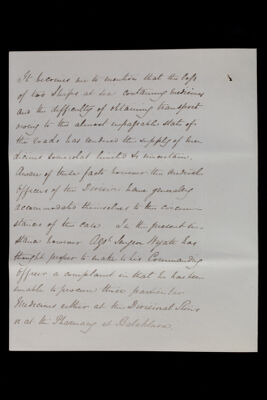 It becomes me to mention that the loss
of two Ships at sea containing medicines
and the difficulty of obtaining transport
owing to the almost impassable state of
the roads has rendered the supply of me-
dicines somewhat limited & uncertain.
Aware of these facts however the medical
Officers of the Division have generally
accommodated themselves to the circum-
stances of the case. In the present in-
stance however Asst Surgeon Wyatt has
thought proper to make to his Commanding
Officer a complaint in that he has been
unable to procure three particular
Medicines either at the Divisional Stores
or at the Pharmacy at Balaklava.